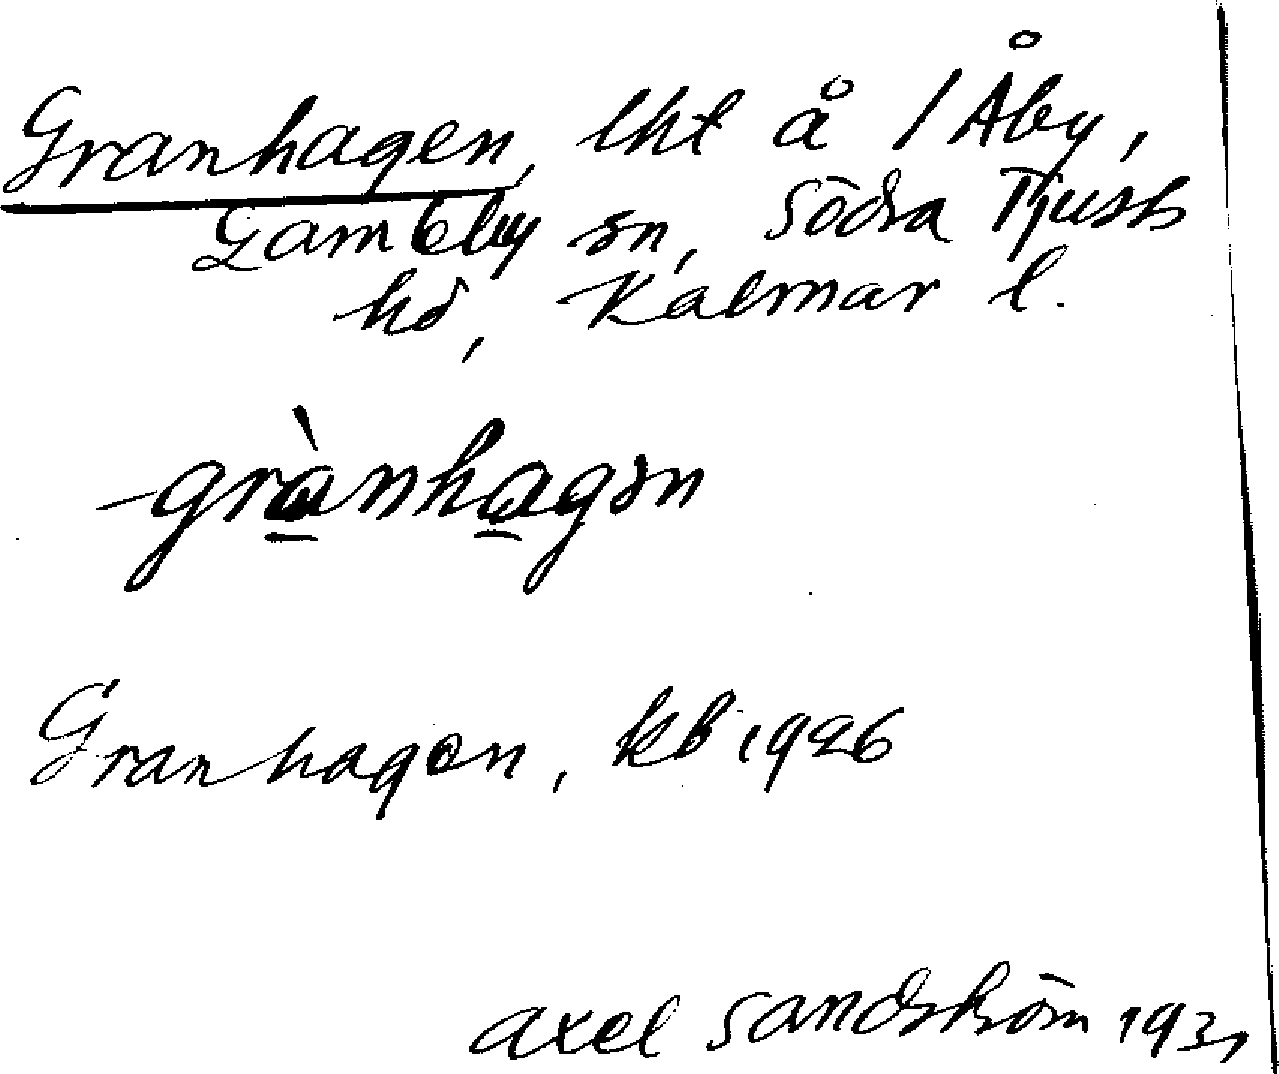 Granhagen, lht å /Åby,
Gamleby sn, Södra Tjusts
hd, Kalmar l.
grànhagən
Granhagen, kb 1926
Axel Sandström 193